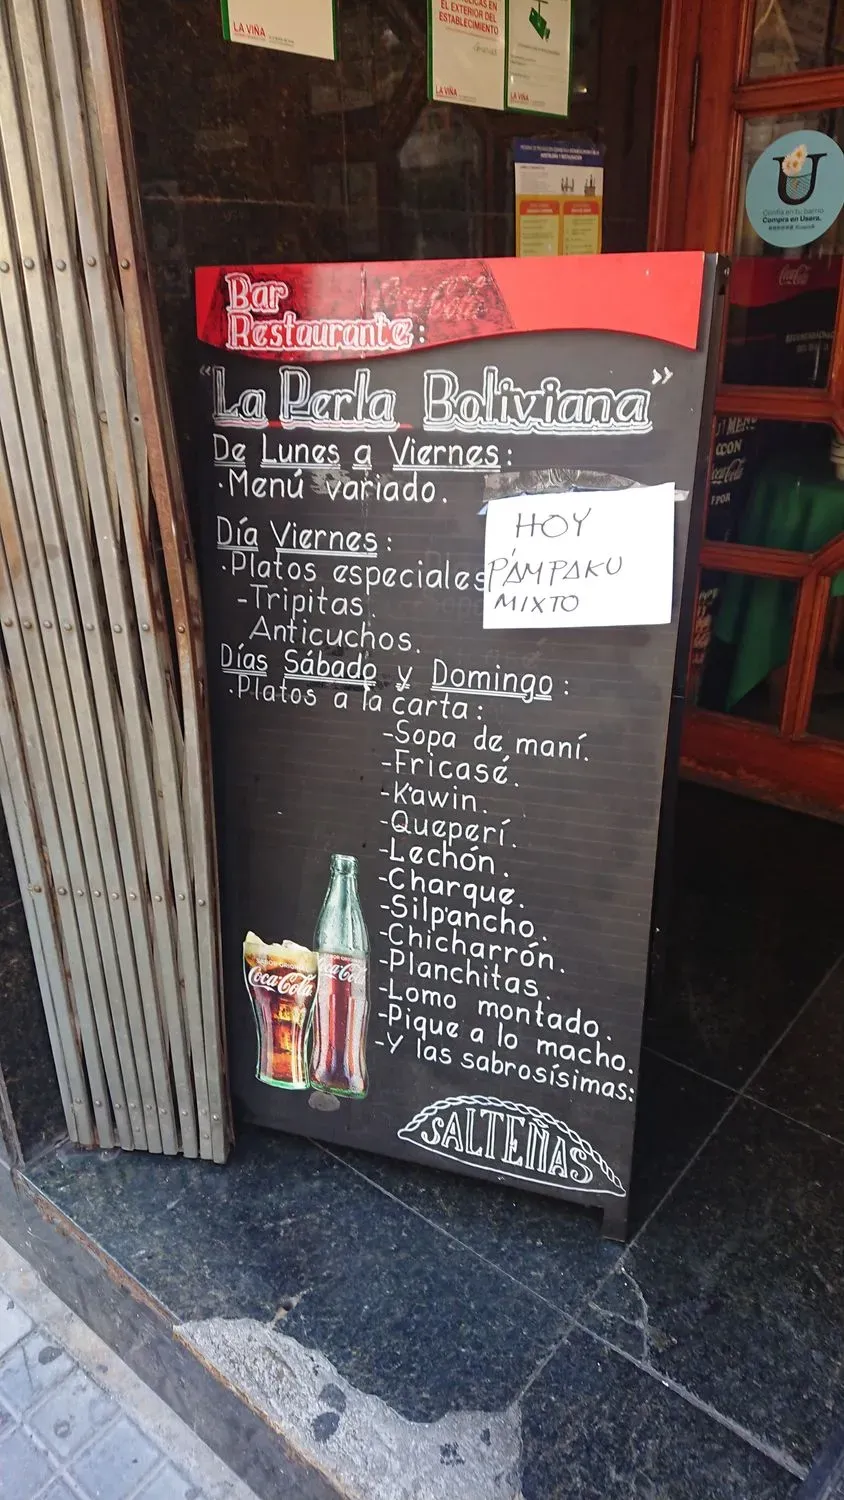 LA VIÑA
EL EXTERIOR DEL
ESTABLECIMIENTO
Gracias
LA VIÑA
LA VIÑA
Confía en tu barrio
Compra en Usera.
Bar
Restaurante:
Coca-Cola
"La Perla Boliviana"
De Lunes a Viernes:
·Menú variado.
HOY
PAMPAKU
MIXTO
Día Viernes:
·Platos especiales
-Tripitas.
Anticuchos.
Días Sábado y Domingo:
·Platos a la carta:
-Sopa de maní.
-Fricasé.
-K'awin.
-Queperí.
-Lechón.
-Charque.
-Silp'ancho.
-Chicharrón.
-Planchitas.
-Lomo montado.
-Pique a lo macho.
-Y las sabrosísimas:
SALTEÑAS
SABOR ORIGINAL
Coca-Cola
Coca-Cola
Coca-Cola
MENÚ
CCON
Coca-Cola